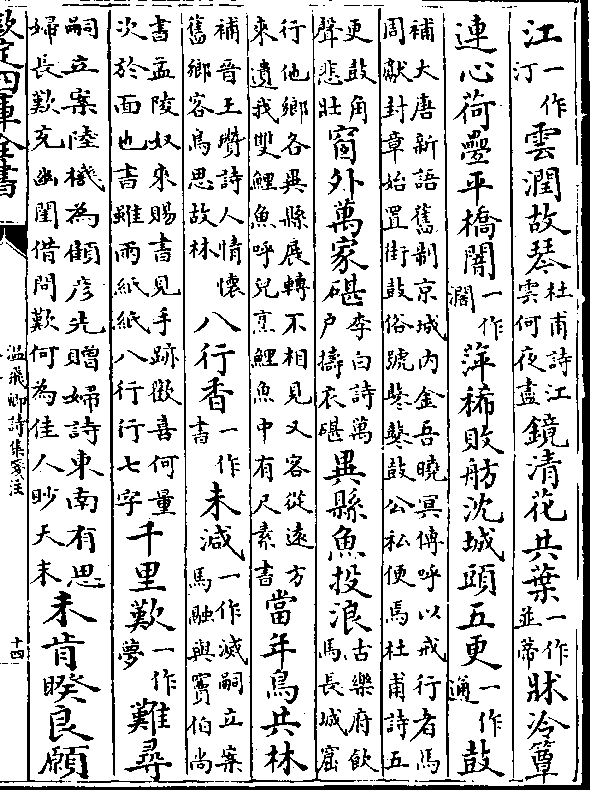 江一作汀雲潤故琴杜甫詩江雲何夜盡鏡清花共葉一作並蒂牀冷簟
連心荷疊平橋闇一作濶萍稀敗舫沈城頭五更一作通鼓
補大唐新語舊制京城内金吾曉冥傳呼以戒行者馬周獻封章始置街鼓俗號鼕鼕鼓公私便馬杜甫詩五
更鼓角聲悲壯窗外萬家碪李白詩萬戸擣衣碪異縣魚投浪古樂府飲馬長城窟
行他鄉各異縣展轉不相見又客從遠方來遺我雙鯉魚呼兒烹鯉魚中有尺素書當年鳥共林
補晉王讚詩人情懷舊鄉客鳥思故林八行香一作書未減一作滅嗣立案馬融與竇伯尚
書孟陵奴來賜書見手跡歡喜何量次於面也書雖兩紙紙八行行七字千里歎一作夢難尋
嗣立案陸機為顧彦先贈婦詩東南有思婦長歎充幽閨借問歎何為佳人眇天末未肯睽良願
欽定四庫全書
温飛卿詩集箋注
十四